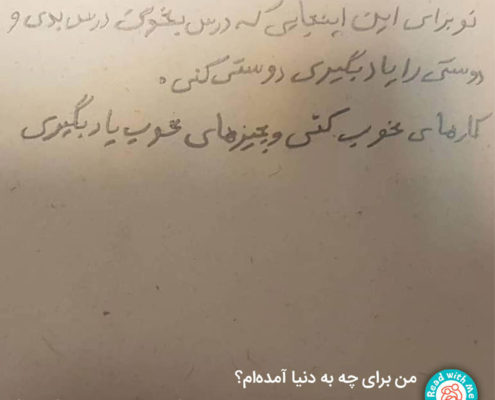 تو برای این اینجایی که درس بخونی درس بدی و
دوستی را یاد بگیری دوستی کنی.
کارهای خوب کنی و چیزهای خوب یاد بگیری
من برای چه به دنیا آمده‌ام؟
Read with Me